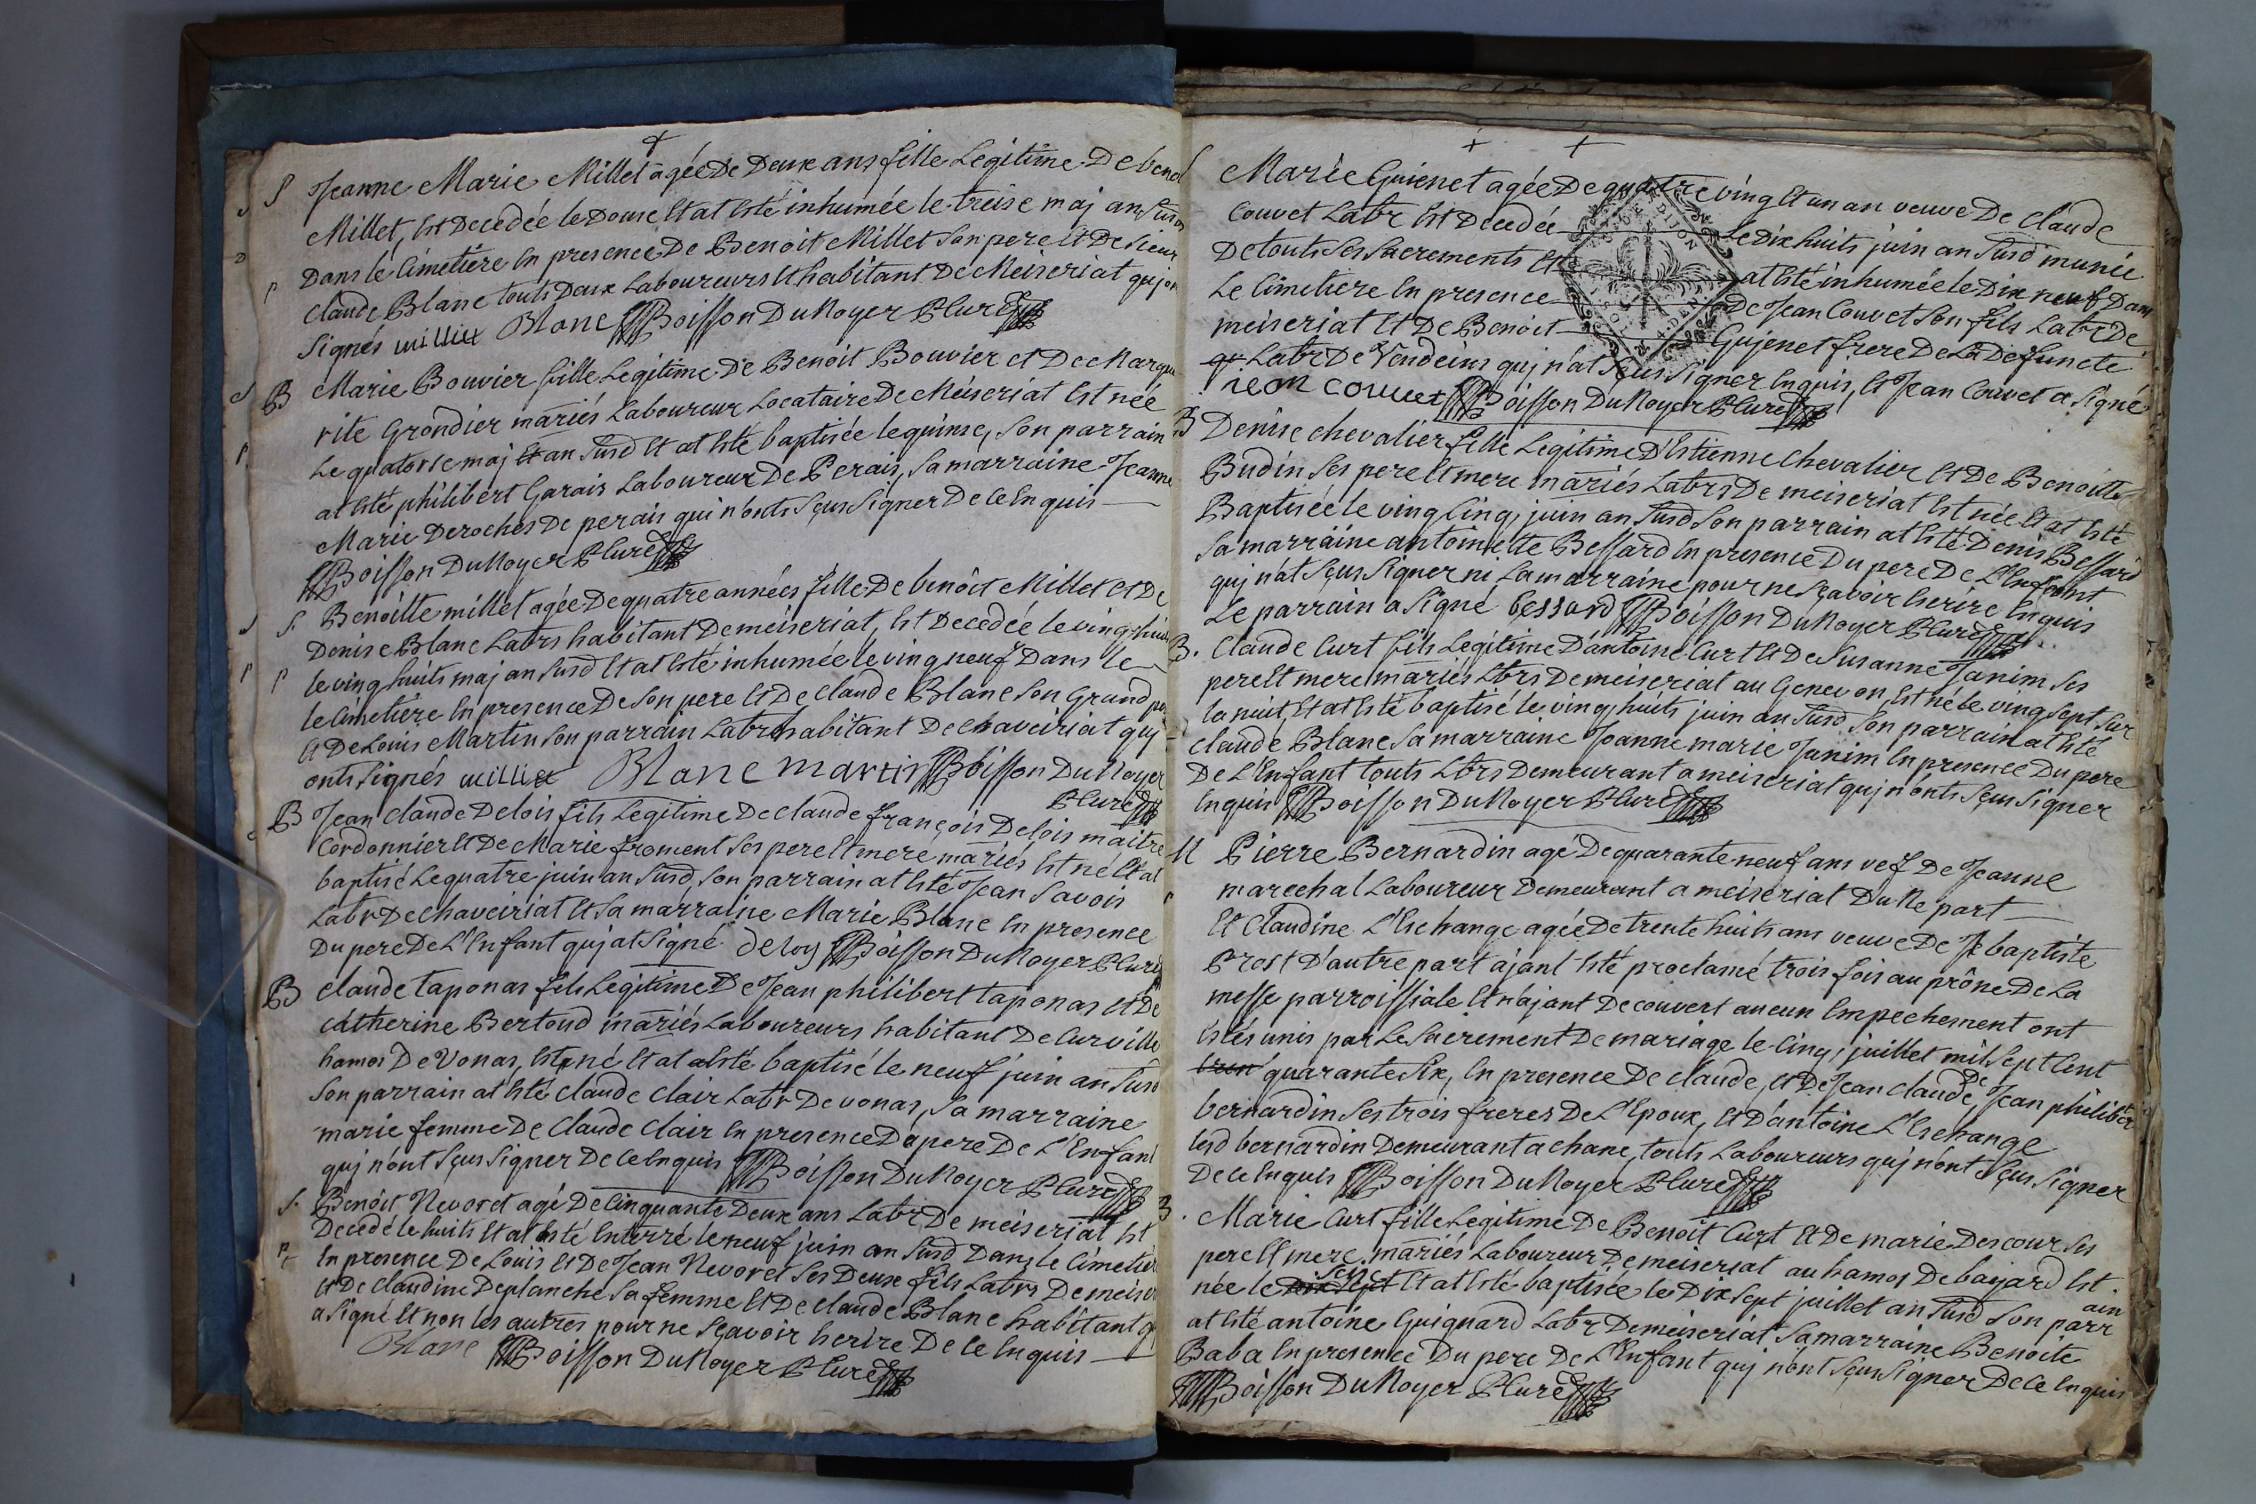 S Jeanne Marie Millet agée De Deux ans fille Legitime De benoi
Millet, Est Decedée le Douse Et at Esté inhumée le treise maj an susd
Dans le Cimetiere En presence De Benoit Millet son pere Et De sieur
Claude Blanc touts Deux Laboureurs Et habitant De Meiseriat quj on
signés milliet Blanc Boisson DuNoyer P Curé
B Marie Bouvier fille Legitime De Benoit Bouvier et De Margu
rite Grondier mariés Laboureur Locataire De Méseriat Est née
Le quatorse maj Et an susd Et at Esté baptisée le quinse, son parrain
at Esté philibert Garais Laboureur De Perais, sa marraine Jeanne
Marie Deroches De perais qui n'onts sçus signer De ce Enquis
Boisson DuNoyer P Curé
S. Benoitte millet agée De quatre années fille De benôit Millet Et De
Denise Blanc Labrs habitant De meiseriat, Est Decedée le ving huits
le ving huits maj an susd Et at Esté inhumée le ving neuf Dans le
le Cimetiére En presence De son pere Et De Claude Blanc son grand pe
Et De Louis Martin son parrain Labr habitant De Chaveiriat quj
onts signés milliet Blanc Martin Boisson DuNoyer
P Curé
B Jean Claude Delois fils Legitime De Claude françois Delois maitre
Cordonnier Et De Marie froment ses pere Et mere mariés Est né Et at
baptisé Le quatre juin an susd, son parrain at Esté Jean Savois
Labr De Chaveiriat Et sa marraine Marie Blanc En presence
Du pere De L'Enfant quj at signé deloy Boisson DuNoyer P Curé
B Claude taponas fils Legitime De Jean philibert taponas et De
Catherine Bertoud mariés Laboureurs habitant De Curville
hamos De Vonas, Est né Et at Esté baptisé le neuf juin an susd
son parrain at Esté Claude Clair Labr De Vonas, sa marraine
marie femme De Claude Clair En presence Du pere De L'Enfant
quj n'ont sçus signer De ce Enquis Boisson DuNoyer P Curé
S. Benôit Nevoret agé De Cinquante Deux ans Labr De meiseriat Est
Decedé le huits Et at Esté Enterré le neuf juin an susd Dans le Cimetier
En presence De Louis Et De Jean Nevoret ses Deux fils Labrs De meiser
Et De Claudine Deplanche sa femme Et De Claude Blanc habitant qu
a signé Et non les autres pour ne sçavoir Escrire De ce Enquis
Blanc Boisson DuNoyer P Curé
Marie Guienet agée De quatre ving Et un an veuve De Claude
Couvet Labr Est Decedée le Dix huits juin an susd munie
De touts ses sacrements Et at Esté inhumée le Dix neuf Dans
Le Cimetiere En presence De Jean Couvet son fils Labr De
meiseriat Et De Benoit Gujenet frere De La Defuncte
Labr De Vendeins quj n'at sçus signer Enquis, Et Jean Couvet a signé
iean couuet Boisson DuNoyer P Curé
B Denise Chevalier fille Legitime D'Estienne Chevalier Et De Benoitte
Budin ses pere Et mere mariés Labrs De meiseriat Est née Et at Esté
Baptisée le ving Cinq, juin an susd son parrain at Esté Denis Bessard
sa marraine antoinette Bessard En presence Du pere De L'Enfant
quj n'at sçus signer ni La marraine pour ne sçavoir Escrire Enquis
Le parrain a signé bessard Boisson DuNoyer P Curé
B. Claude Curt fils Legitime D'antoine Curt Et De Susanne Janim ses
pere Et mere mariés Lbrs De meiseriat au Genevon Est né le ving sept sur
la nuit, Et at Esté baptisé le ving huits juin an susd son parrain at Esté
Claude Blanc sa marraine Jeanne marie Janim En presence Du pere
De L'Enfant touts Lbrs Demeurant a meiseriat quj n'onts sçus signer
Enquis Boisson DuNoyer P Curé
M Pierre Bernardin agé De quarante neuf ans vef De Jeanne
marechal Laboureur Demeurant a meiseriat D'une part
Et Claudine L'Eschange agée De trente huits ans veuve De J baptiste
Prost D'autre part ajant Esté proclamé trois fois au prône De La
messe parroissiale Et n'ajant Decouvert aucun Empechement ont
Estés unis par Le sacrement De mariage le Cinq, juillet mil sept Cent
quarante six, En presence De Claude, Et De Jean Claude, De Jean philibert
bernardin ses trois freres De L'Epoux, Et D'antoine L'Eschange
Lesd bernardin Demeurant a Chane, touts Laboureurs quj n'ont sçus signer
De ce Enquis Boisson DuNoyer P Curé
B. Marie Curt fille Legitime De Benoit Curt Et De marie Descour ses
pere Et mere mariés Laboureur De meiseriat au hamos De bajard Est
née le Dix sept seise Et at Esté baptisée le Dix sept juillet an susd son parrain
at Esté antoine Guignard Labr De meiseriat sa marraine Benoite
Baba En presence Du pere De L'Enfant quj n'ont sçus signer De ce Enquis
Boisson DuNoyer P Curé